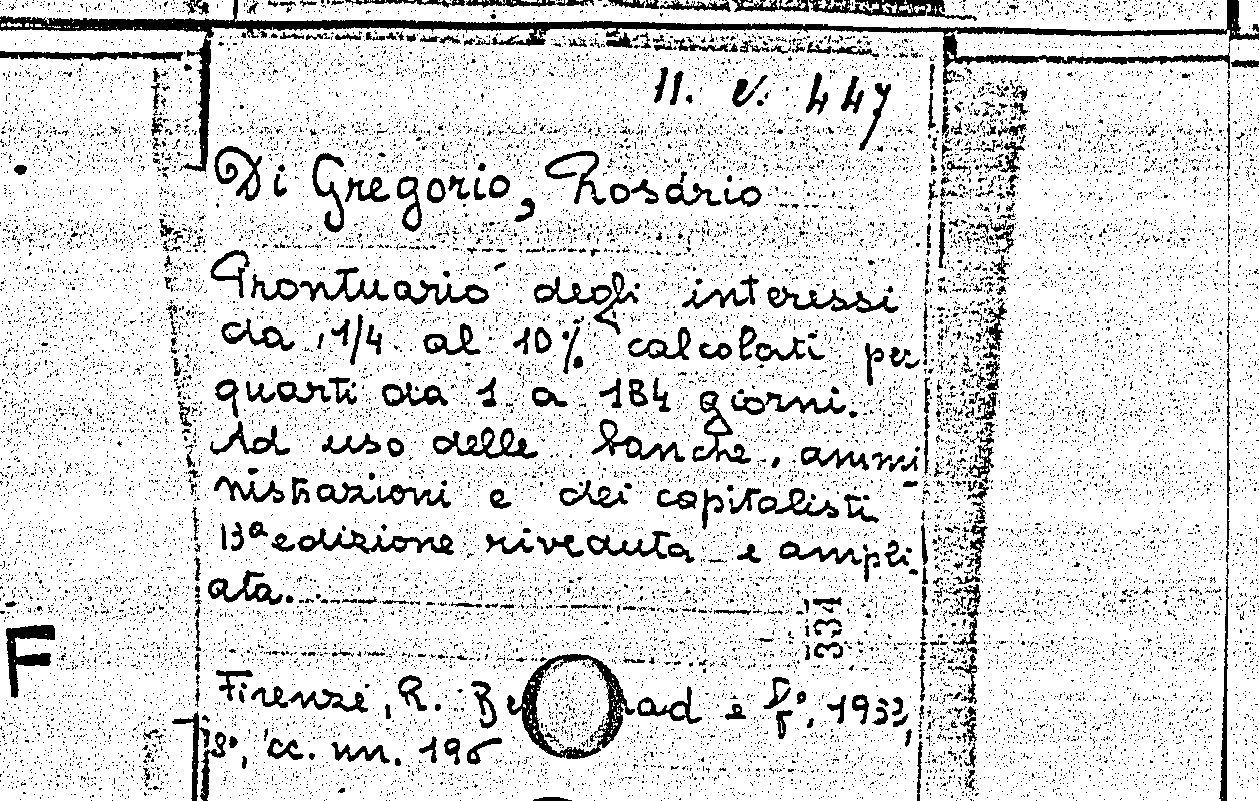 11. V. 447
Di Gregorio, Rosario
Prontuario degli interessi
da 1/4 al 10% calcolati per
quarti da 1 a 184 giorni.
Ad uso delle banche, ammi
nistrazioni e dei capitalisti
13ª edizione riveduta e ampli-
ata.
334
Firenze, R. e fº, 1933,
8º, cc. nn. 196
F